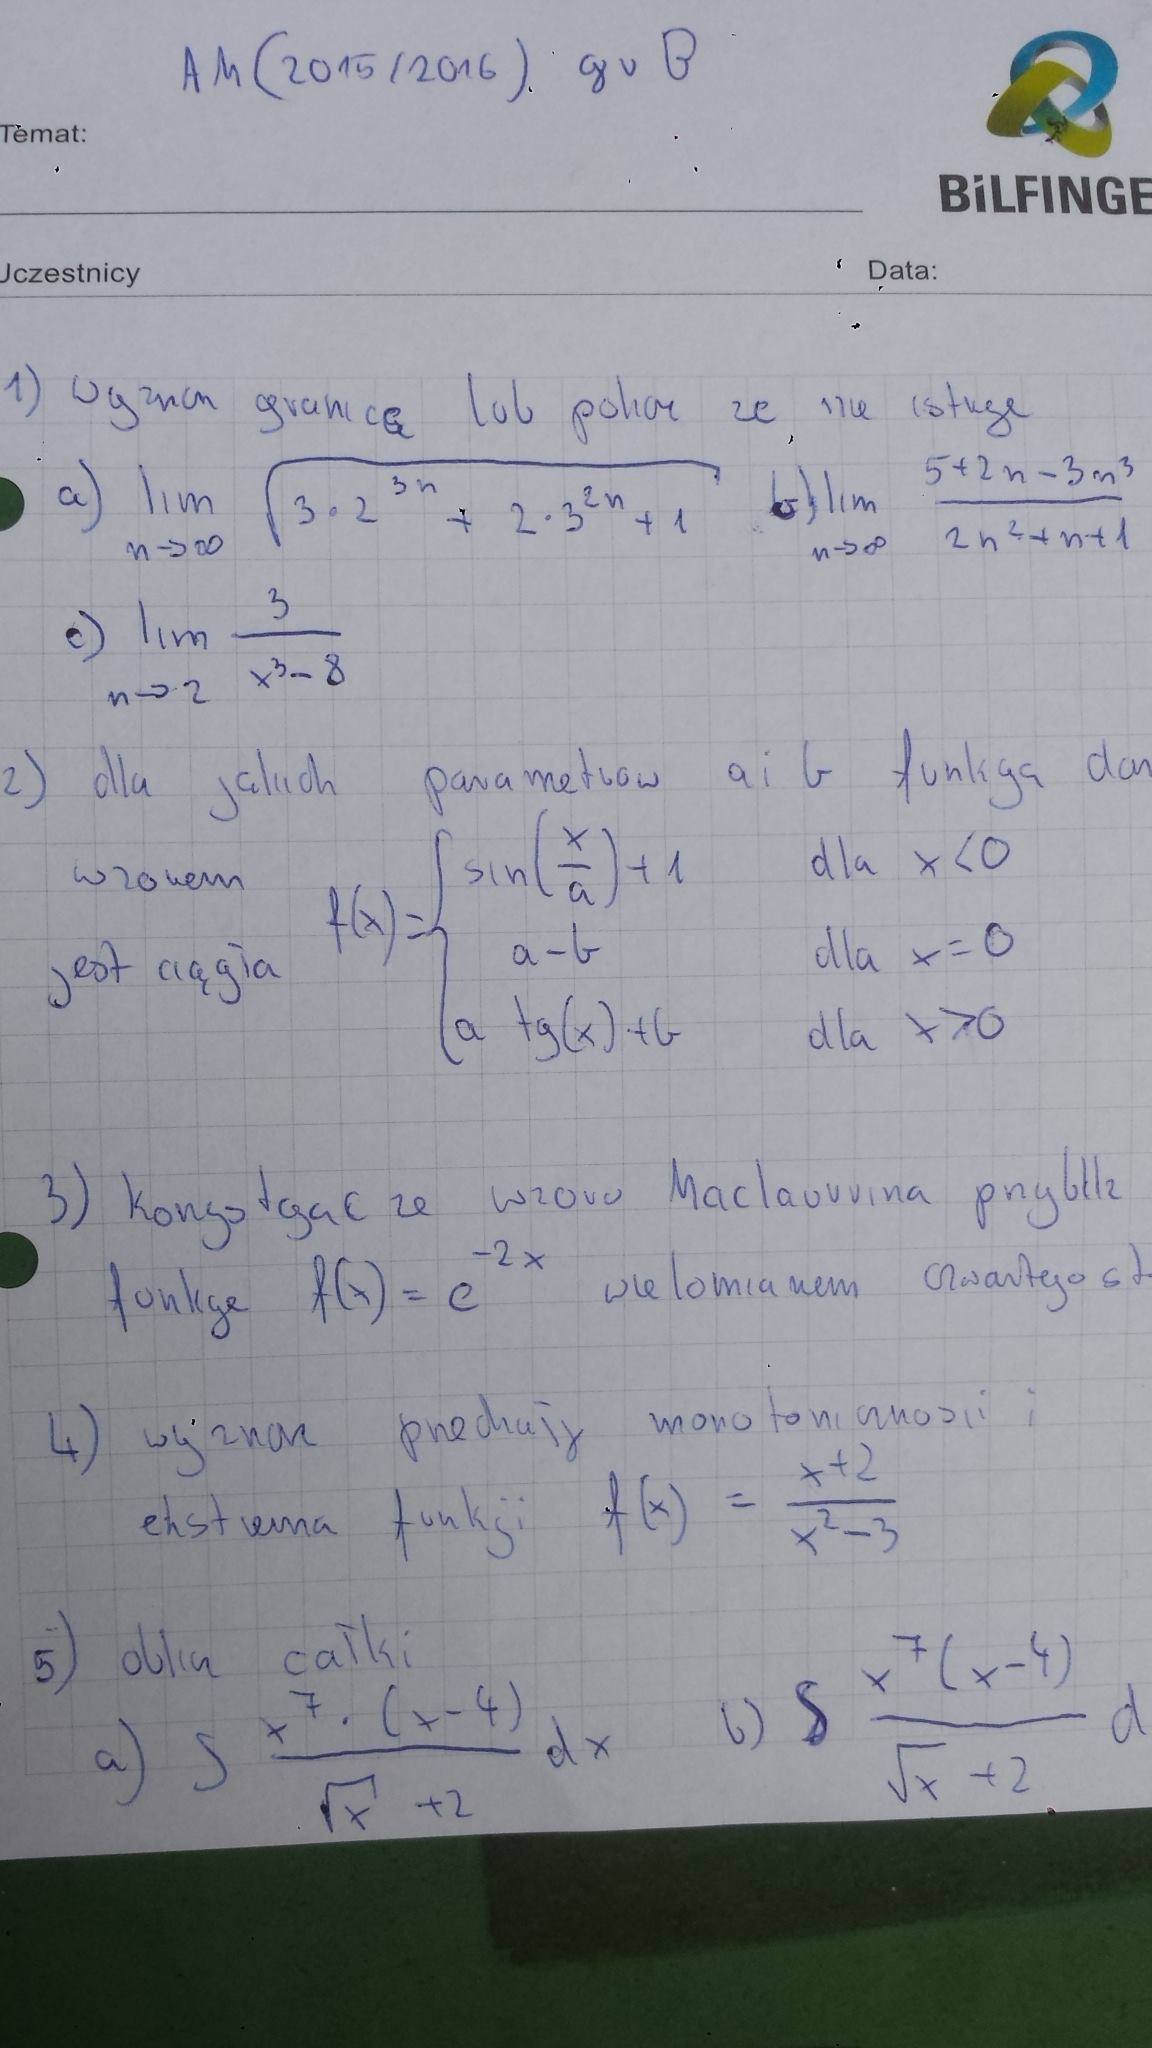 AM (2015/2016). gr B
Temat:
BiLFINGE
Uczestnicy
Data:
1) wyznacz granicę lub pokaż ze nie istnieje
a) lim n→∞ √(3·2^(3n) + 2·3^(2n) + 1) b) lim n→∞ (5+2n-3n³)/(2n²+n+1)
c) lim n→2 3/(x³-8)
2) dla jakich parametrow a i b funkcja dan
wzorem f(x)= { sin(x/a)+1 dla x<0
a-b dla x=0
jest ciągła
a tg(x)+b dla x>0
3) Korzystając ze wzoru Maclaurina przybliż
funkcje f(x) = e^(-2x) wielomianem czwartego st
4) wyznacz przedziały monotoniczności i
ekstrema funkcji f(x) = (x+2)/(x²-3)
5) oblicz całki
a) ∫ (x⁷·(x-4))/(√x +2) dx b) ∫ (x⁷(x-4))/(√x +2) d